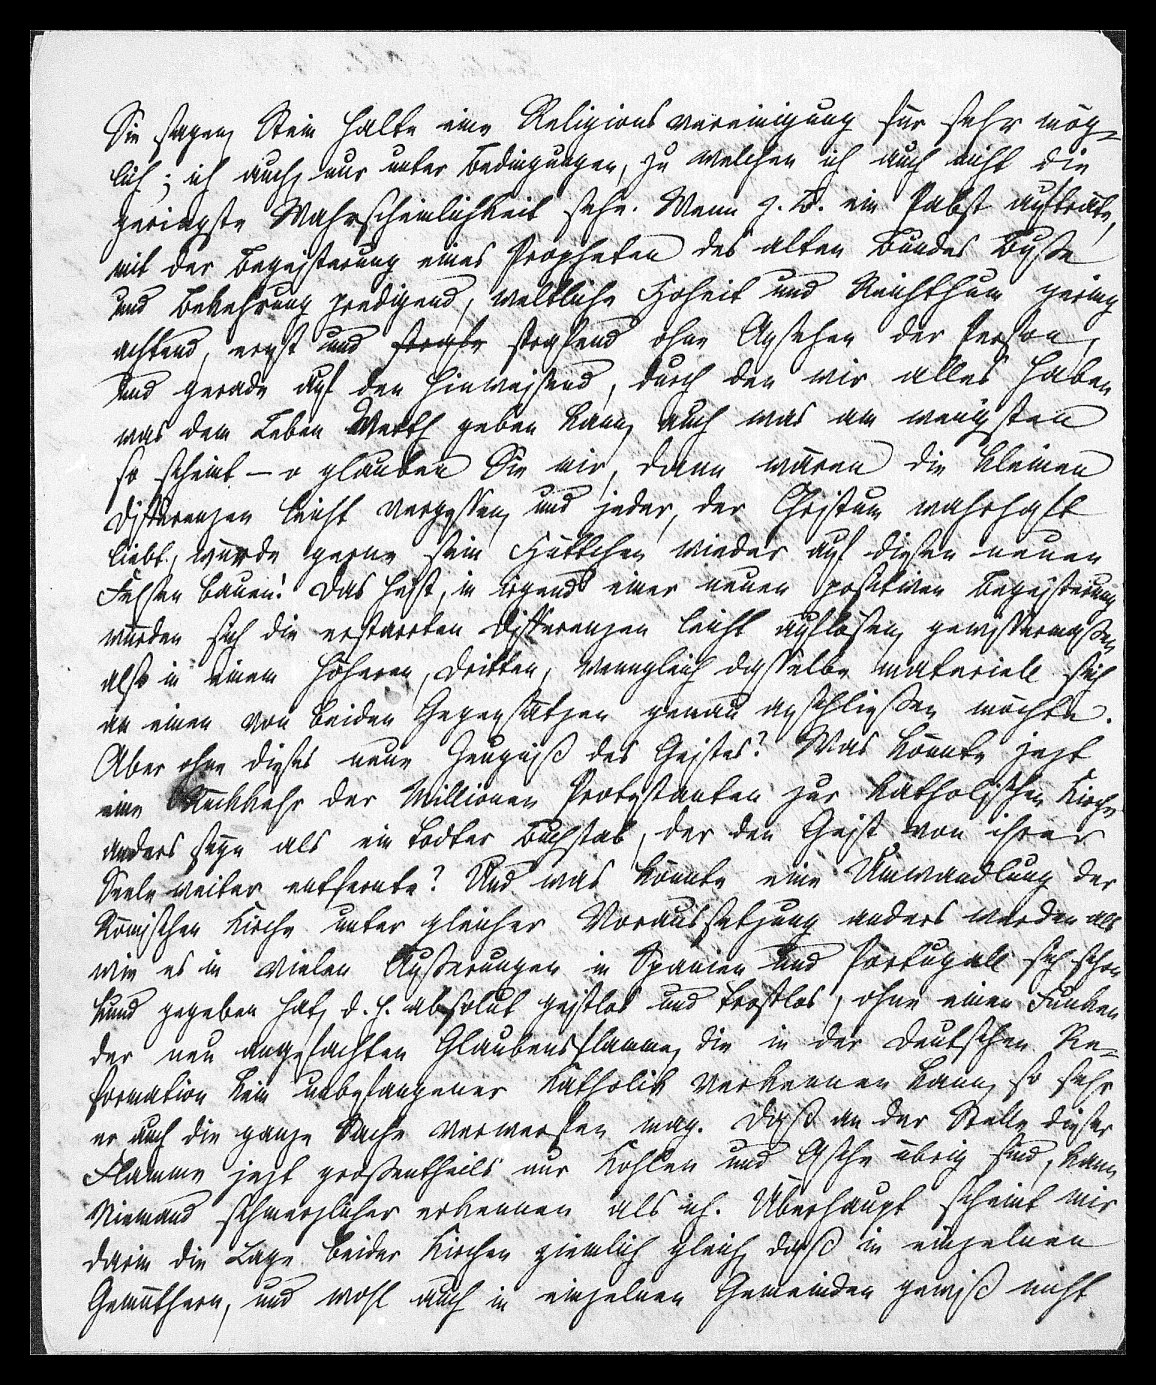 Sie sagen, Stein halte eine Religionsvereinigung für sehr mög-
lich; ich auch, nur unter Bedingungen, zu welchen ich auch nicht die
geringste Wahrscheinlichkeit sehe. Wenn z. B. ein Pabst aufträte,
mit der Begeisterung eines Propheten des alten Bundes Buße
und Bekehrung predigend, weltliche Hoheit und Reichthum gering
achtend, ernst und strafe strafend ohne Ansehen der Person,
und gerade auf den hinweisend, durch den wir alles haben
was dem Leben Werth geben kann, auch was am wenigsten
so scheint – o glauben Sie mir, dann wären die kleinen
Differenzen leicht vergessen, und jeder, der Christum wahrhaft
liebt, würde gerne sein Hüttchen wieder auf diesen neuen
Felsen bauen! Das heist, in irgend einer neuen positiven Begeisterung
würden sich die erstarrten Differenzen leicht auflösen, gewissermaßen
also in einem höheren, dritten, wenngleich dasselbe materiell sich
an einen von beiden Gegensätzen genau anschließen möchte.
Aber ohne dieses neue Zeugniß des Geistes? Was könnte jezt
eine Rückkehr der Millionen Protestanten zur katholischen Kirche
anders seyn als ein todter Buchstab, der den Geist von ihrer
Seele weiter entfernte? Und was könnte eine Umwandlung der
Römischen Kirche unter gleicher Voraussetzung anders werden als
wie es in vielen Äußerungen in Spanien und Portugall sich schon
kund gegeben hat, d. h. absolut geistlos und trostlos, ohne einen Funken
der neu angefachten Glaubensflamme, die in der deutschen Re-
formation kein unbefangener Katholik verkennen kann, so sehr
er auch die ganze Sache verwerfen mag. Daß an der Stelle dieser
Flamme jezt großentheils nur Kohlen und Asche übrig sind, kann
Niemand schmerzlicher erkennen als ich. Überhaupt scheint mir
darin die Lage beider Kirchen ziemlich gleich, daß in einzelnen
Gemüthern, und wohl auch in einzelnen Gemeinden gewiß nicht